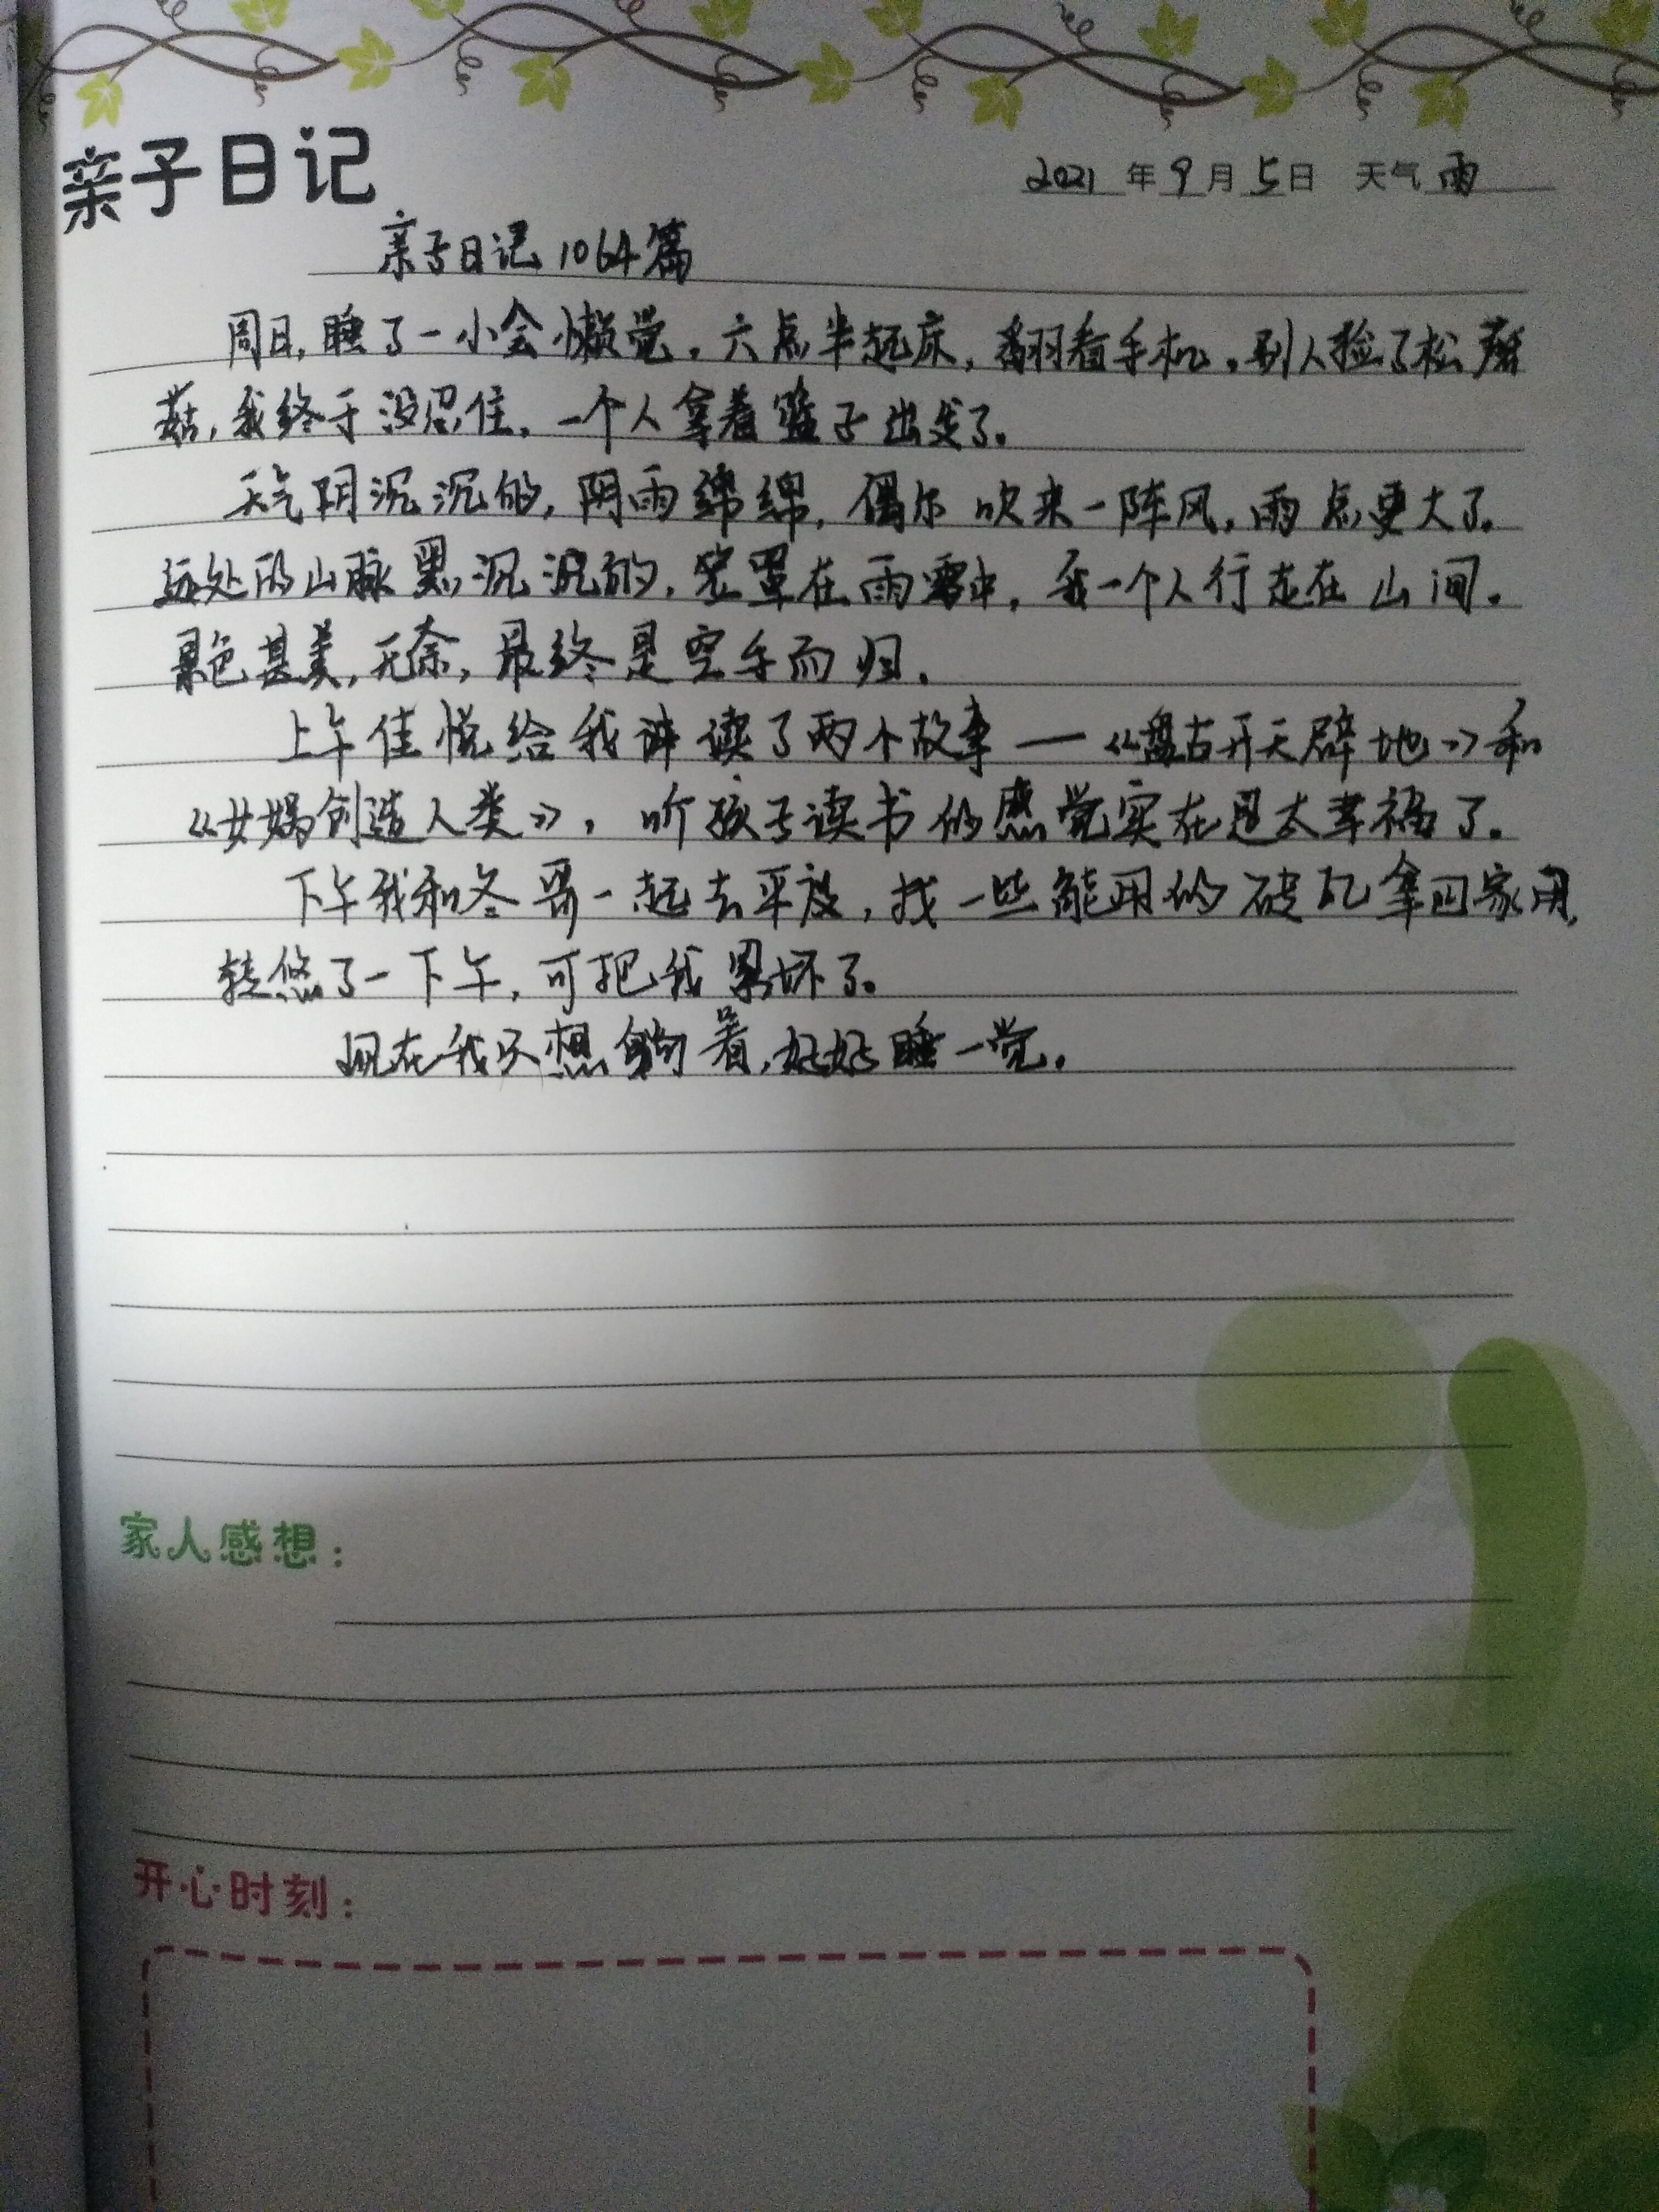 亲子日记
2021年9月5日 天气雨
亲子日记1064篇
周日,睡了一小会懒觉,六点半起床,翻看手机,别人捡了松蘑
菇,我终于没忍住,一个人拿着篮子出发了。
天气阴沉沉的,阴雨绵绵,偶尔吹来一阵风,雨点更大了。
远处的山脉黑沉沉的,笼罩在雨雾中,我一个人行走在山间。
景色甚美,无奈,最终是空手而归。
上午佳悦给我讲读了两个故事—《盘古开天辟地》和
《女娲创造人类》,听孩子读书的感觉实在是太幸福了。
下午我和冬哥一起去平房,找一些能用的砖瓦拿回家用,
转悠了一下午,可把我累坏了。
现在我只想躺着,好好睡一觉。
家人感想:
开心时刻: